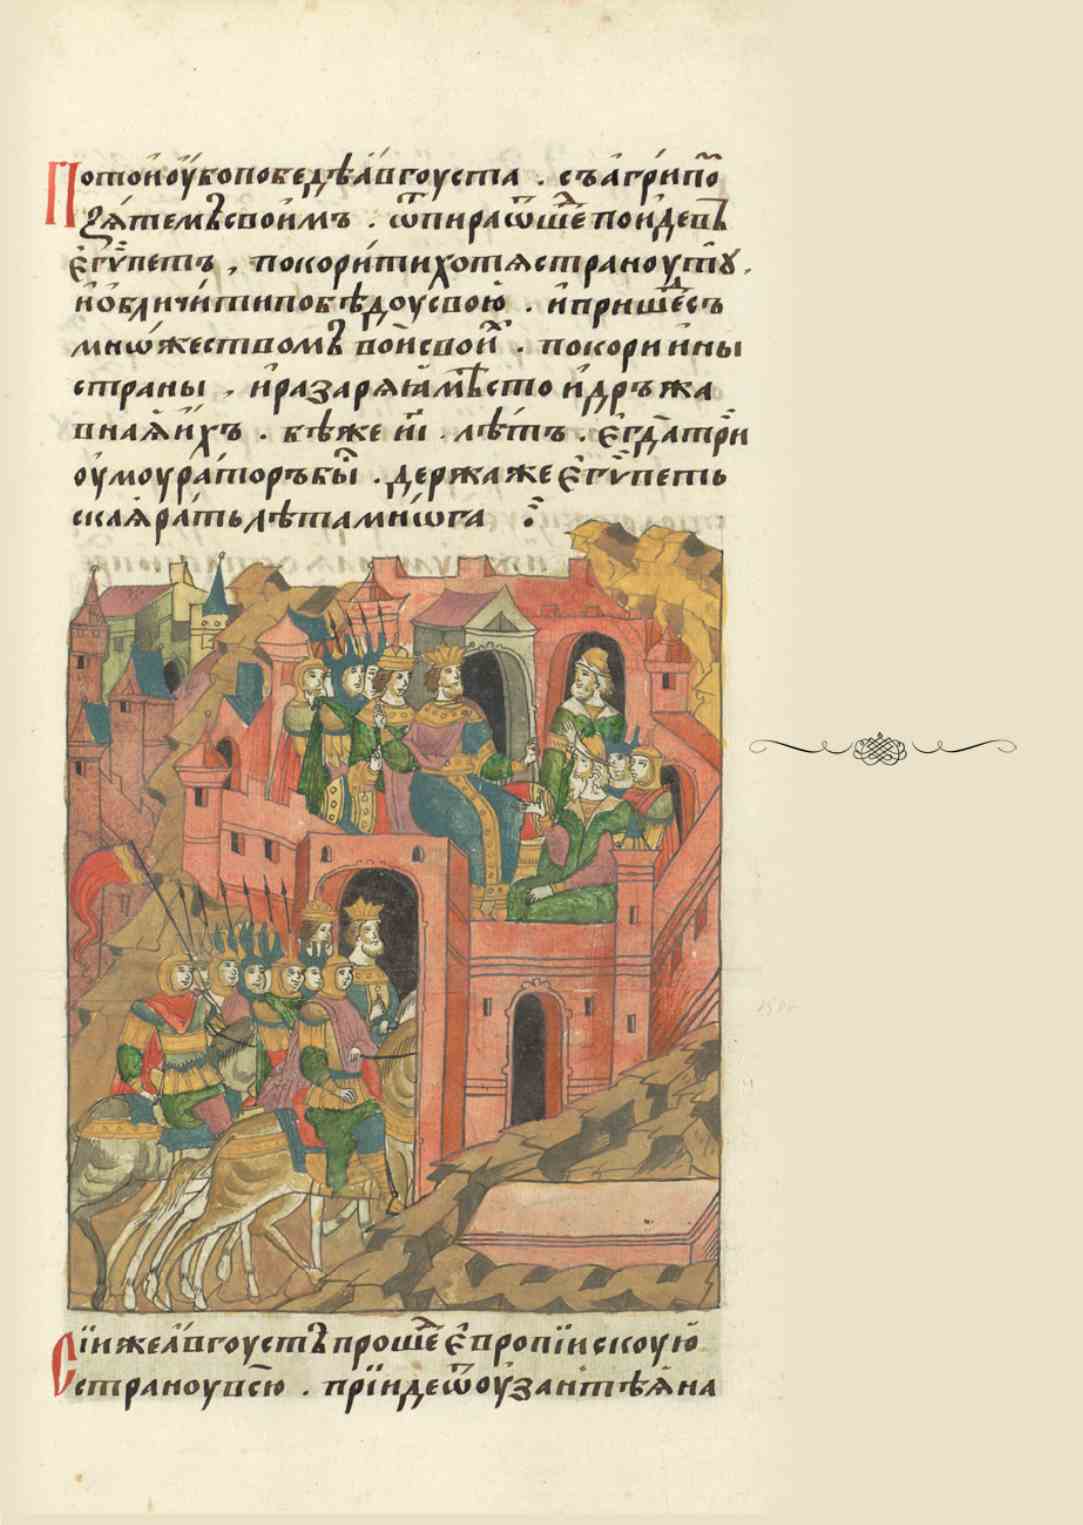 Потомоубопобедѣа́вгоуста . съагри́по
ꙁѧ́темъсвои́мъ . ѿпираѿше́ пои́девъ
є҆гѵ́петъ , покори́тихотѧстраноутꙋ̀ ,
и҆обличи́типобѣ́доусвою̀ . и҆прише́съ
мно́жествомъ во́исвои . покори и҆ны
страны , и҆разарѧ́ꙗмѣ́сто и҆дръжа
внаꙗ и҆́хъ . бѣ́же и҃і . лѣ́тъ . є҆гда́три
оумоура́торъбы́ . держаже є҆гѵ́петь
скаꙗра́тьлѣ́тамно́га ⁘
Сїйжеа́вгоустъ проше́ є҆вропі́искоую
страноувсю̀ . прїидеѿоузантѣ́ꙗна